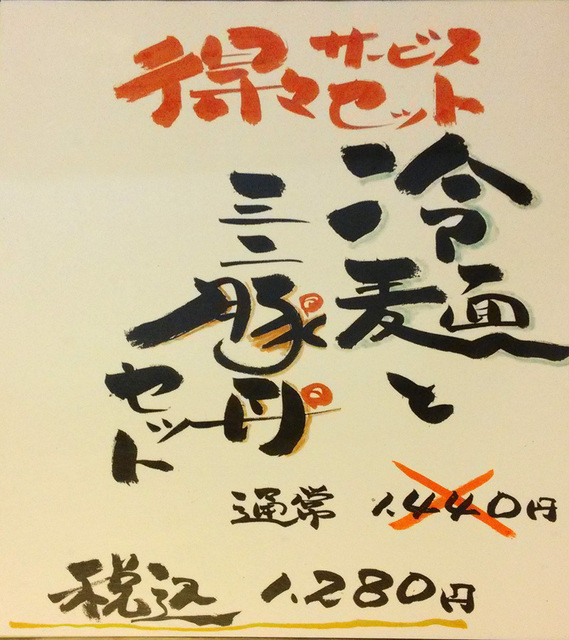 得々
サービス
セット
冷麺と
ミニ豚丼
セット
通常 1.440円
税込 1.280円